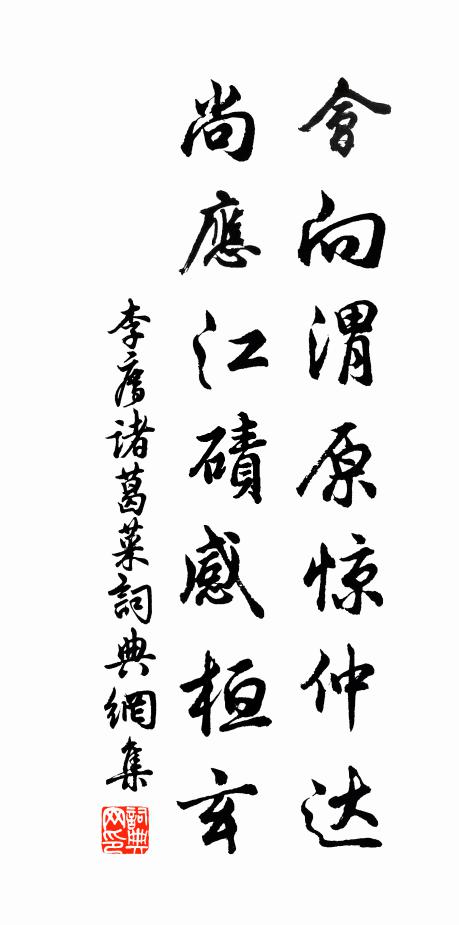 會向渭原惊仲达
尚應江磧感桓玄
李廌諸葛菜詞典網集
詞典网印